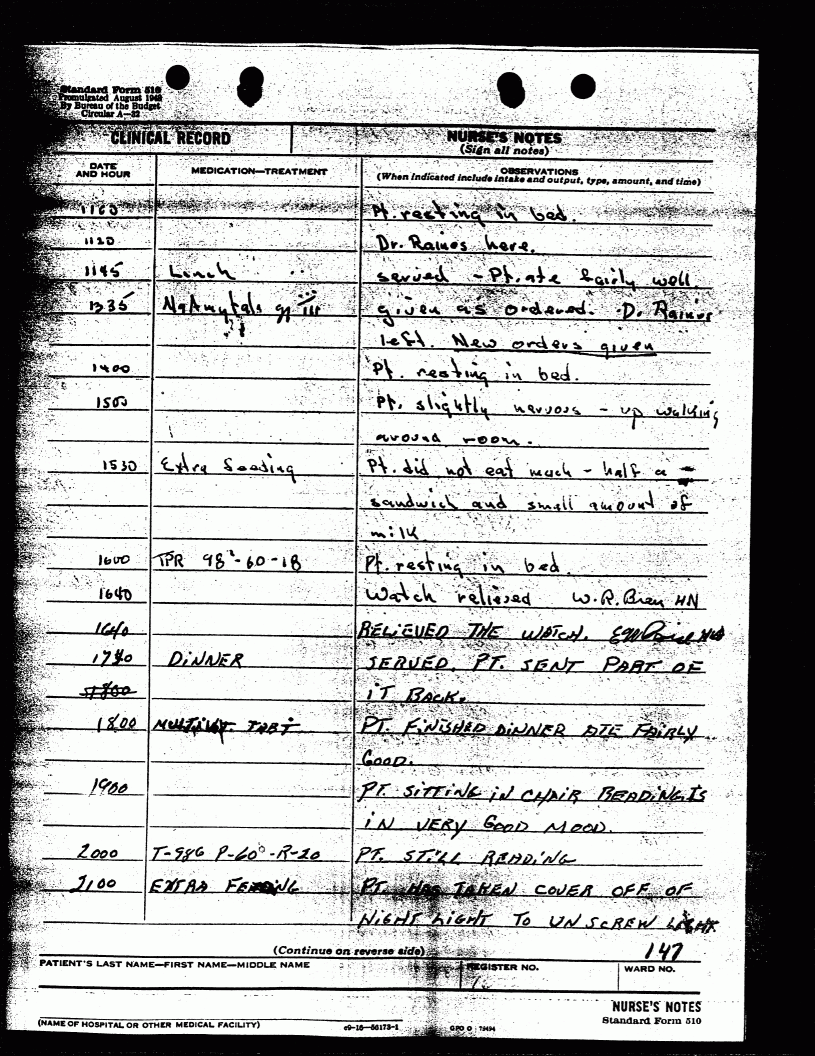 Standard Form 510
Promulgated August 1949
By Bureau of the Budget
Circular A—32
CLINICAL RECORD NURSE'S NOTES
(Sign all notes)
DATE AND HOUR MEDICATION—TREATMENT OBSERVATIONS
(When indicated include intake and output, type, amount, and time)
1100 Pt. resting in bed.
1120 Dr. Raines here.
1145 Lunch served - Pt. ate fairly well
1335 NaAmytals gr iii given as ordered. D. Raines
left. New orders given
1400 Pt. resting in bed.
1500 Pt. slightly nervous - up walking
around room.
1530 Extra Feeding Pt. did not eat much - half a
sandwich and small amount of
milk
1600 TPR 98-60-18 Pt. resting in bed.
1640 Watch relieved W.R. HN
1640 RELIEVED THE WATCH.
DINNER SERVED. PT. SENT PART OF
1800 IT BACK.
1800 PT. FINISHED DINNER ATE FAIRLY
GOOD.
1900 PT. SITTING IN CHAIR READING IS
IN VERY GOOD MOOD.
2000 T-986 P-60-R-20 PT. STILL READING
2100 EXTRA FEEDING PT. HAS TAKEN COVER OFF OF
NIGHT LIGHT TO UNSCREW LIGHT
(Continue on reverse side) 147
PATIENT'S LAST NAME—FIRST NAME—MIDDLE NAME REGISTER NO. WARD NO.
NURSE'S NOTES
Standard Form 510
(NAME OF HOSPITAL OR OTHER MEDICAL FACILITY) c9-16—56173-1 GPO